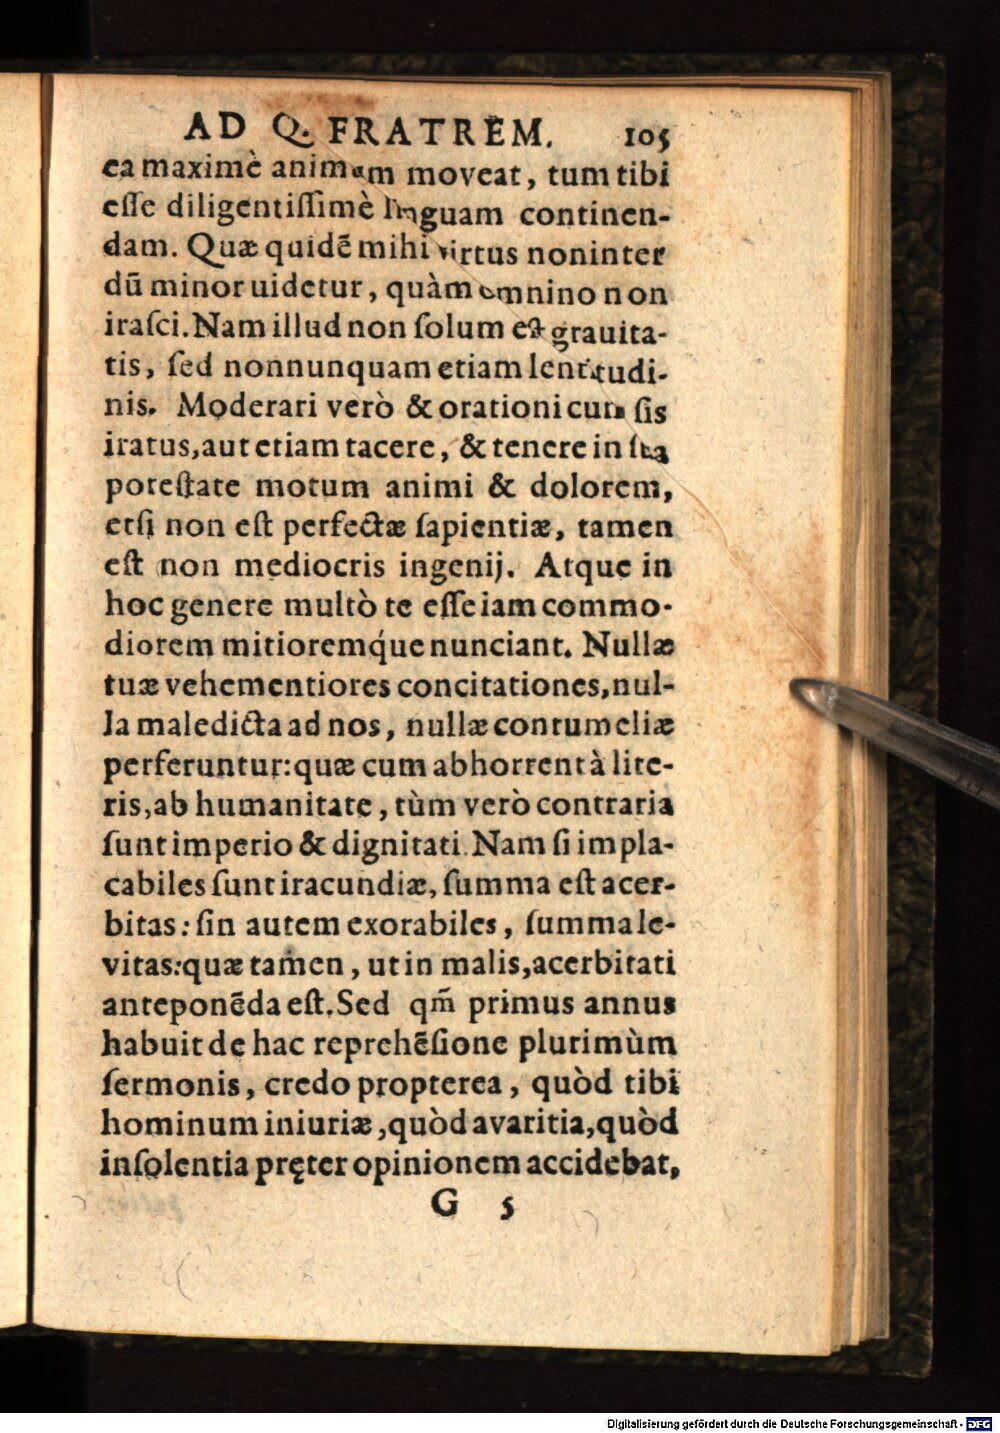 AD Q. FRATREM. 105
ea maximè animum moveat, tum tibi
eſſe diligentiſſimè linguam continen-
dam. Quæ quidē mihi virtus noninter
dū minor uidetur, quàm omnino non
iraſci. Nam illud non ſolum eſt grauita-
tis, ſed nonnunquam etiam lentitudi-
nis. Moderari verò & orationi cum ſis
iratus, aut etiam tacere, & tenere in ſua
poteſtate motum animi & dolorem,
etſi non eſt perfectæ ſapientiæ, tamen
eſt non mediocris ingenij. Atque in
hoc genere multò te eſſe iam commo-
diorem mitioremq́ue nunciant. Nullæ
tuæ vehementiores concitationes, nul-
la maledicta ad nos, nullæ contumeliæ
perferuntur: quæ cum abhorrent à lite-
ris, ab humanitate, tùm verò contraria
ſunt imperio & dignitati. Nam ſi impla-
cabiles ſunt iracundiæ, ſumma eſt acer-
bitas: ſin autem exorabiles, ſumma le-
vitas: quæ tamen, ut in malis, acerbitati
anteponēda eſt. Sed qm̄ primus annus
habuit de hac reprehēſione plurimùm
ſermonis, credo propterea, quòd tibi
hominum iniuriæ, quòd avaritia, quòd
inſolentia pręter opinionem accidebat,
G 5
Digitalisierung gefördert durch die Deutsche Forschungsgemeinschaft - DFG